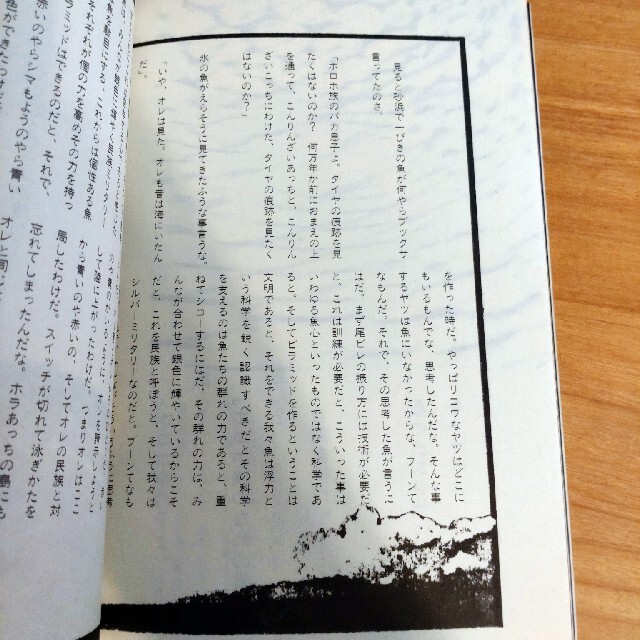 見ると砂浜で一ぴきの魚が何やらブックサ
言ってたのさ。
「ホロホ族のバカ皇子と。タイヤの痕跡を見
たくはないのか？　何万年か前におまえの上
を通って、こんりんざいあっちと、こんりん
ざいこっちにわけた、タイヤの痕跡を見たく
はないのか？」
氷の魚がえらそうに見てきたふうな事言うな。
「いや、オレは見た。オレも昔は海にいたん
だ」。
を作った時だ。やっぱりニウなヤツはどこに
もいるもんでな、思考したんだな。そんな事
するヤツは魚にいなかったからな、フーンて
なもんだ。それで、その思考した魚が言うに
はだ。まず尾ビレの振り方には技術が必要だ
と、これは訓練が必要だと、こういった事は
いわゆる魚心といったものではなく科学であ
ると、そしてピラミッドを作るということは
文明であると、それをできる我々魚は浮力と
いう科学を鋭く認識すべきだとその科学
を支えるのは魚たちの群れの力であると、重
ねてシコーするにはだ、その群れの力は、み
んなが合わせて銀色に輝やいているからこそ
だと、これを民族と呼ぼうと、そして我々は
シルバーミリタリーなのだと。フーンてなも
それぞれが個の力を高めその力を持つ
ラミッドはできるのだと、それで、
赤いのやらシマもようのやら青い
して陸に上がったわけだ。つまりオレはここ
から青いのや赤いの、そしてオレの民族と対
局したわけだ。スイッチが切れて泳ぎかたを
忘れてしまったんだな。ホラあっちの島にも